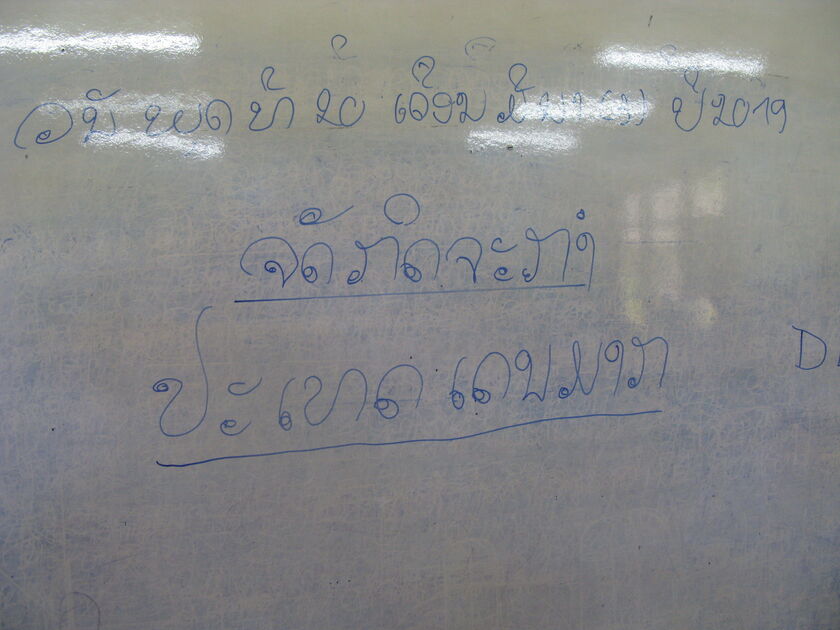 ວັນ ພຸດ ທີ 20 ເດືອນ ມີນາ (3) ປີ 2019
ຈັດກິດຈະກຳ
ປະເທດ ເດນມາກ